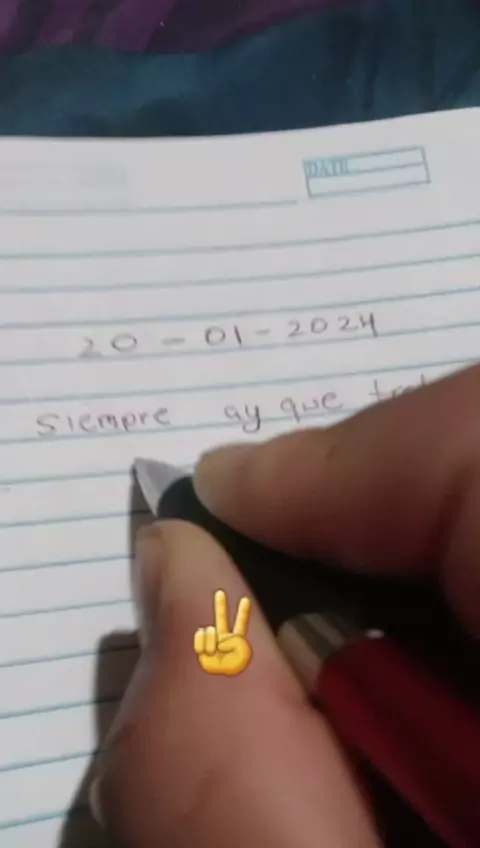 DATE
20-01-2024
Siempre ay que